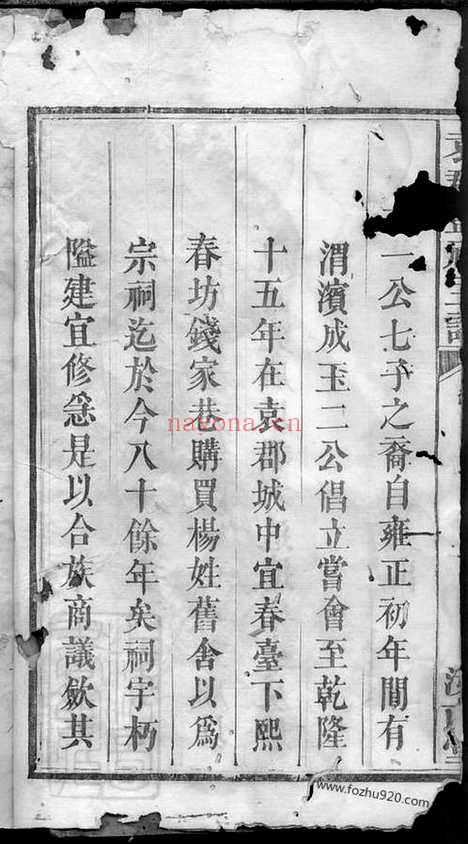 一公七子之裔自雍正初年間有
渭濱成玉二公倡立嘗會至乾隆
十五年在袁郡城中宜春臺下熙
春坊錢家巷購買楊姓舊舍以爲
宗祠迄於今八十餘年矣祠宇朽
隘建宜修急是以合族商議歛其
nayona.cn
www.fozhu920.com